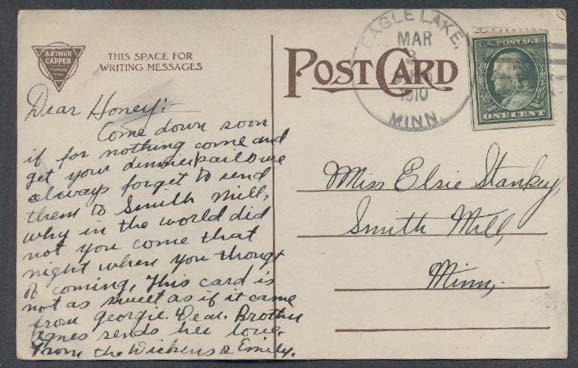 ARTHUR
CAPPER
THIS SPACE FOR
WRITING MESSAGES
POST CARD
EAGLE LAKE,
MAR
3
1910
MINN.
U.S. POSTAGE
ONE CENT
Dear Honey:-
Come down soon
if for nothing come and
get your dinner pail we
always forget to send
them to Smith Mill,
why in the world did
not you come that
night when you thought
of coming, This card is
not as sweet as if it came
from georgie Dear. Brother
Agnes sends her love,
From the Wickens & Emily.
Miss Elsie Stankey,
Smith Mill,
Minn,